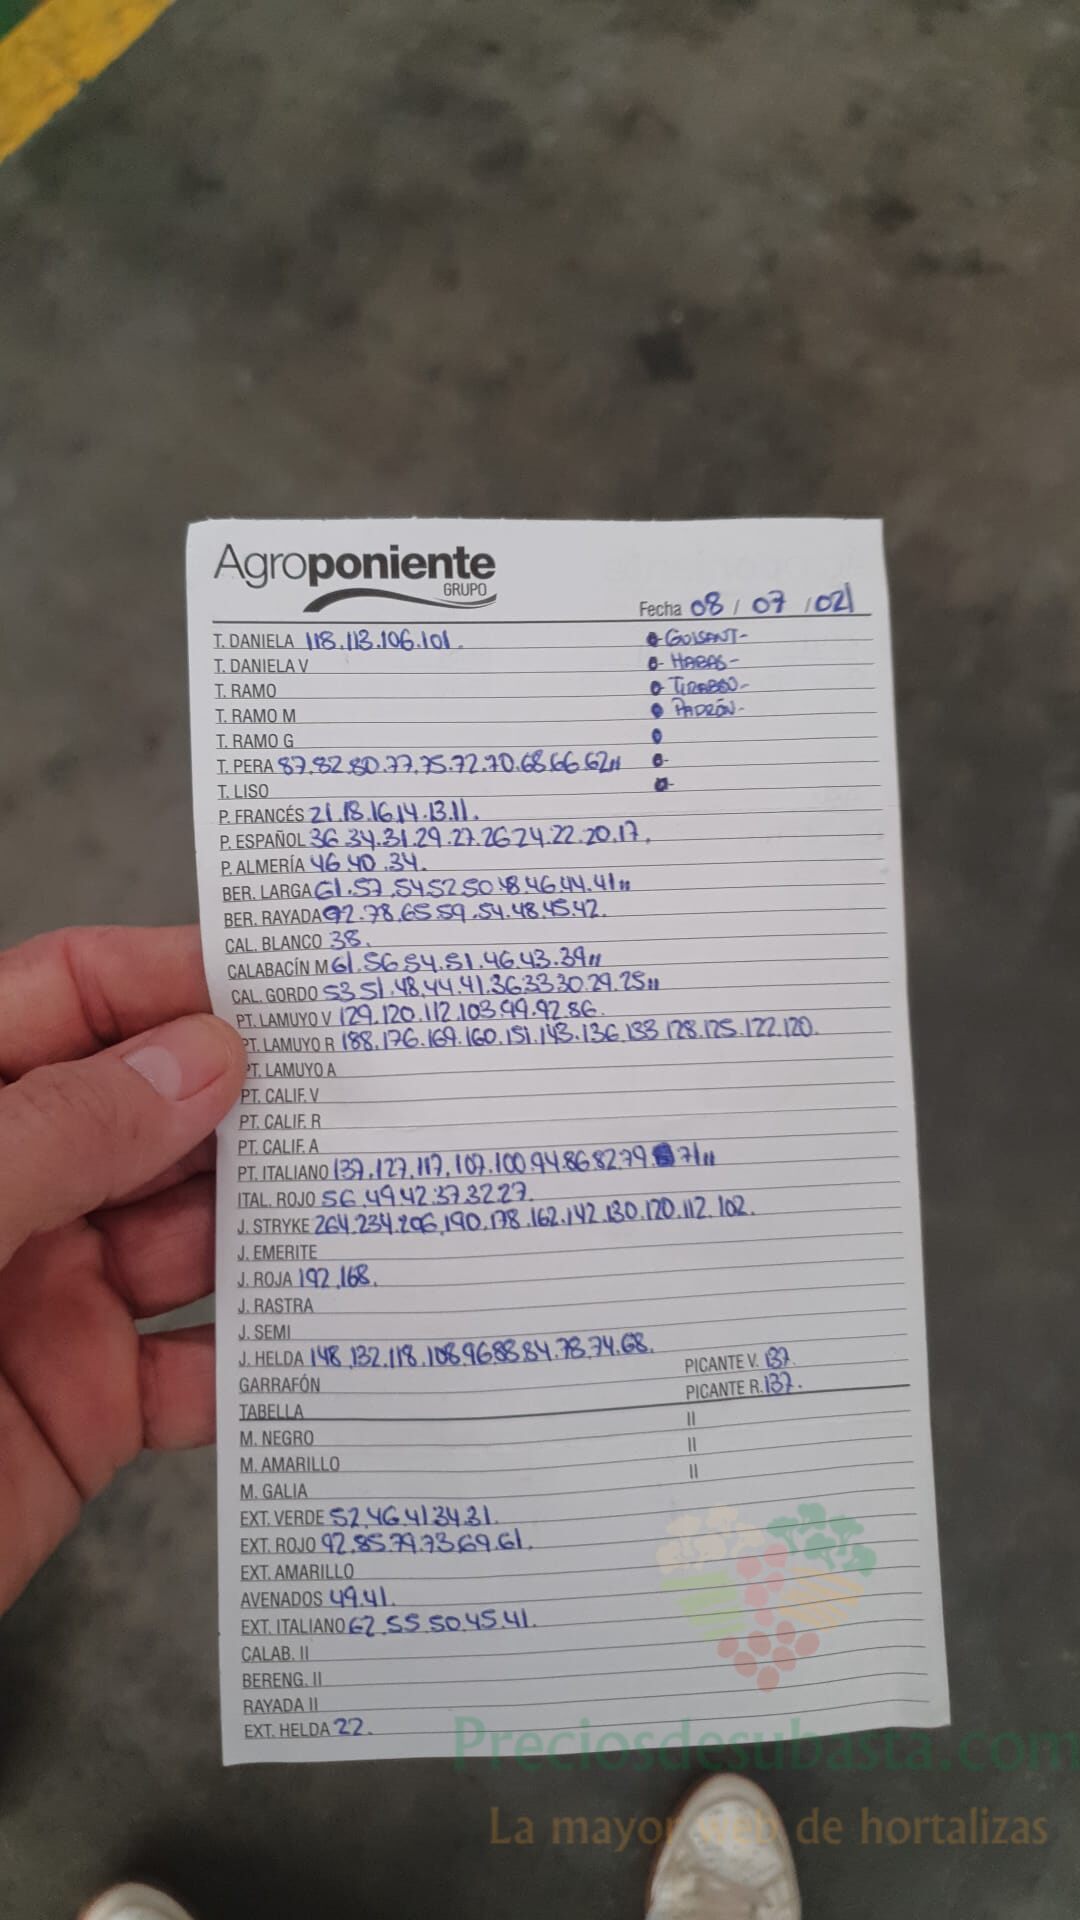 Agroponiente
GRUPO
Fecha 08 / 07 / 02|
T. DANIELA 118.113.106.101. - GUISANT-
T. DANELA V - HABAS-
T. RAMO - TIRABEQ-
T. RAMO M PADRÓN-
T. RAMO G
T. PERA 87.82.80.77.75.72.70.68.66.62,,
T. LISO
P. FRANCÉS 21.18.16.14.13.11.
P. ESPAÑOL 36.34.31.29.27.26.24.22.20.17.
P. ALMERÍA 46.40.34.
BER. LARGA 61.57.54.52.50.48.46.44.41,,
BER. RAYADA 92.78.65.59.54.48.45.42.
CAL. BLANCO 38.
CALABACÍN M 61.56.54.51.46.43.39,,
CAL. GORDO 53.51.48.44.41.36.33.30.29.25,,
PT. LAMUYO V 129.120.112.103.99.92.86.
PT. LAMUYO R 188.176.169.160.151.143.136.133.128.125.122.120.
PT. LAMUYO A
PT. CALIF. V
PT. CALIF. R
PT. CALIF. A
PT. ITALIANO 137.127.117.107.100.94.86.82.79. 71,,
ITAL. ROJO 56.49.42.37.32.27.
J. STRYKE 264.234.206.190.178.162.142.130.120.112.102.
J. EMERITE
J. ROJA 192.168.
J. RASTRA
J. SEMI
J. HELDA 148.132.118.108.96.88.84.78.74.68.
GARRAFÓN PICANTE V. 137.
TABELLA PICANTE R. 137.
M. NEGRO II
M. AMARILLO II
M. GALIA II
EXT. VERDE 52.46.41.34.31.
EXT. ROJO 92.85.79.73.69.61.
EXT. AMARILLO
AVENADOS 49.41.
EXT. ITALIANO 62.55.50.45.41.
CALAB. II
BERENG. II
RAYADA II
EXT. HELDA 22.
Preciosdesubasta.com
La mayor web de hortalizas